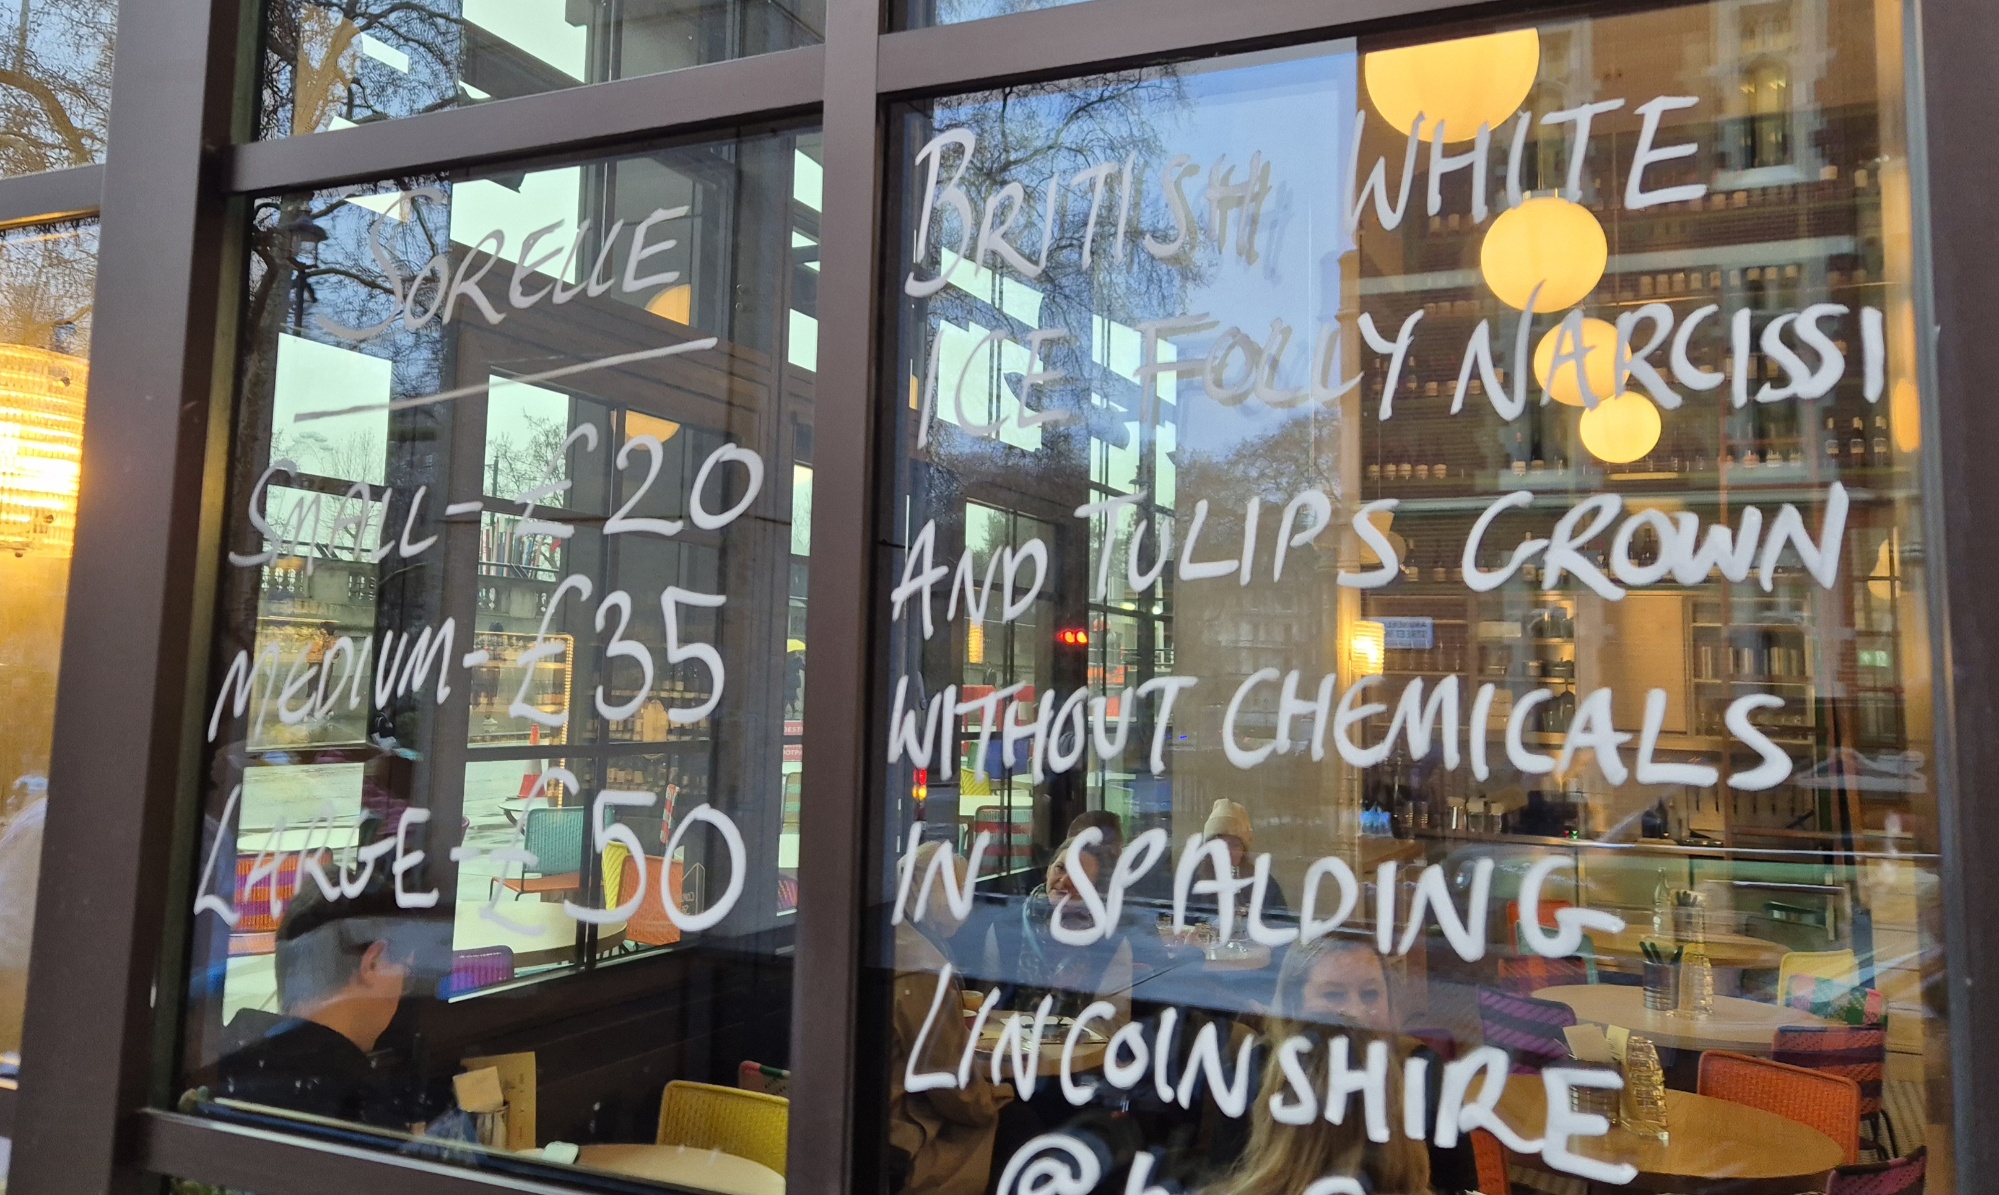 SORELLE
SMALL - £20
MEDIUM - £35
LARGE - £50
BRITISH WHITE
ICE FOLLY NARCISSI
AND TULIPS GROWN
WITHOUT CHEMICALS
IN SPALDING
LINCOLNSHIRE